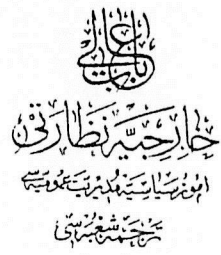 باب عالی
خارجیه نظارتی
امور سیاسیه مدیریت عمومیه‌سی
ترجمه شعبه‌سی